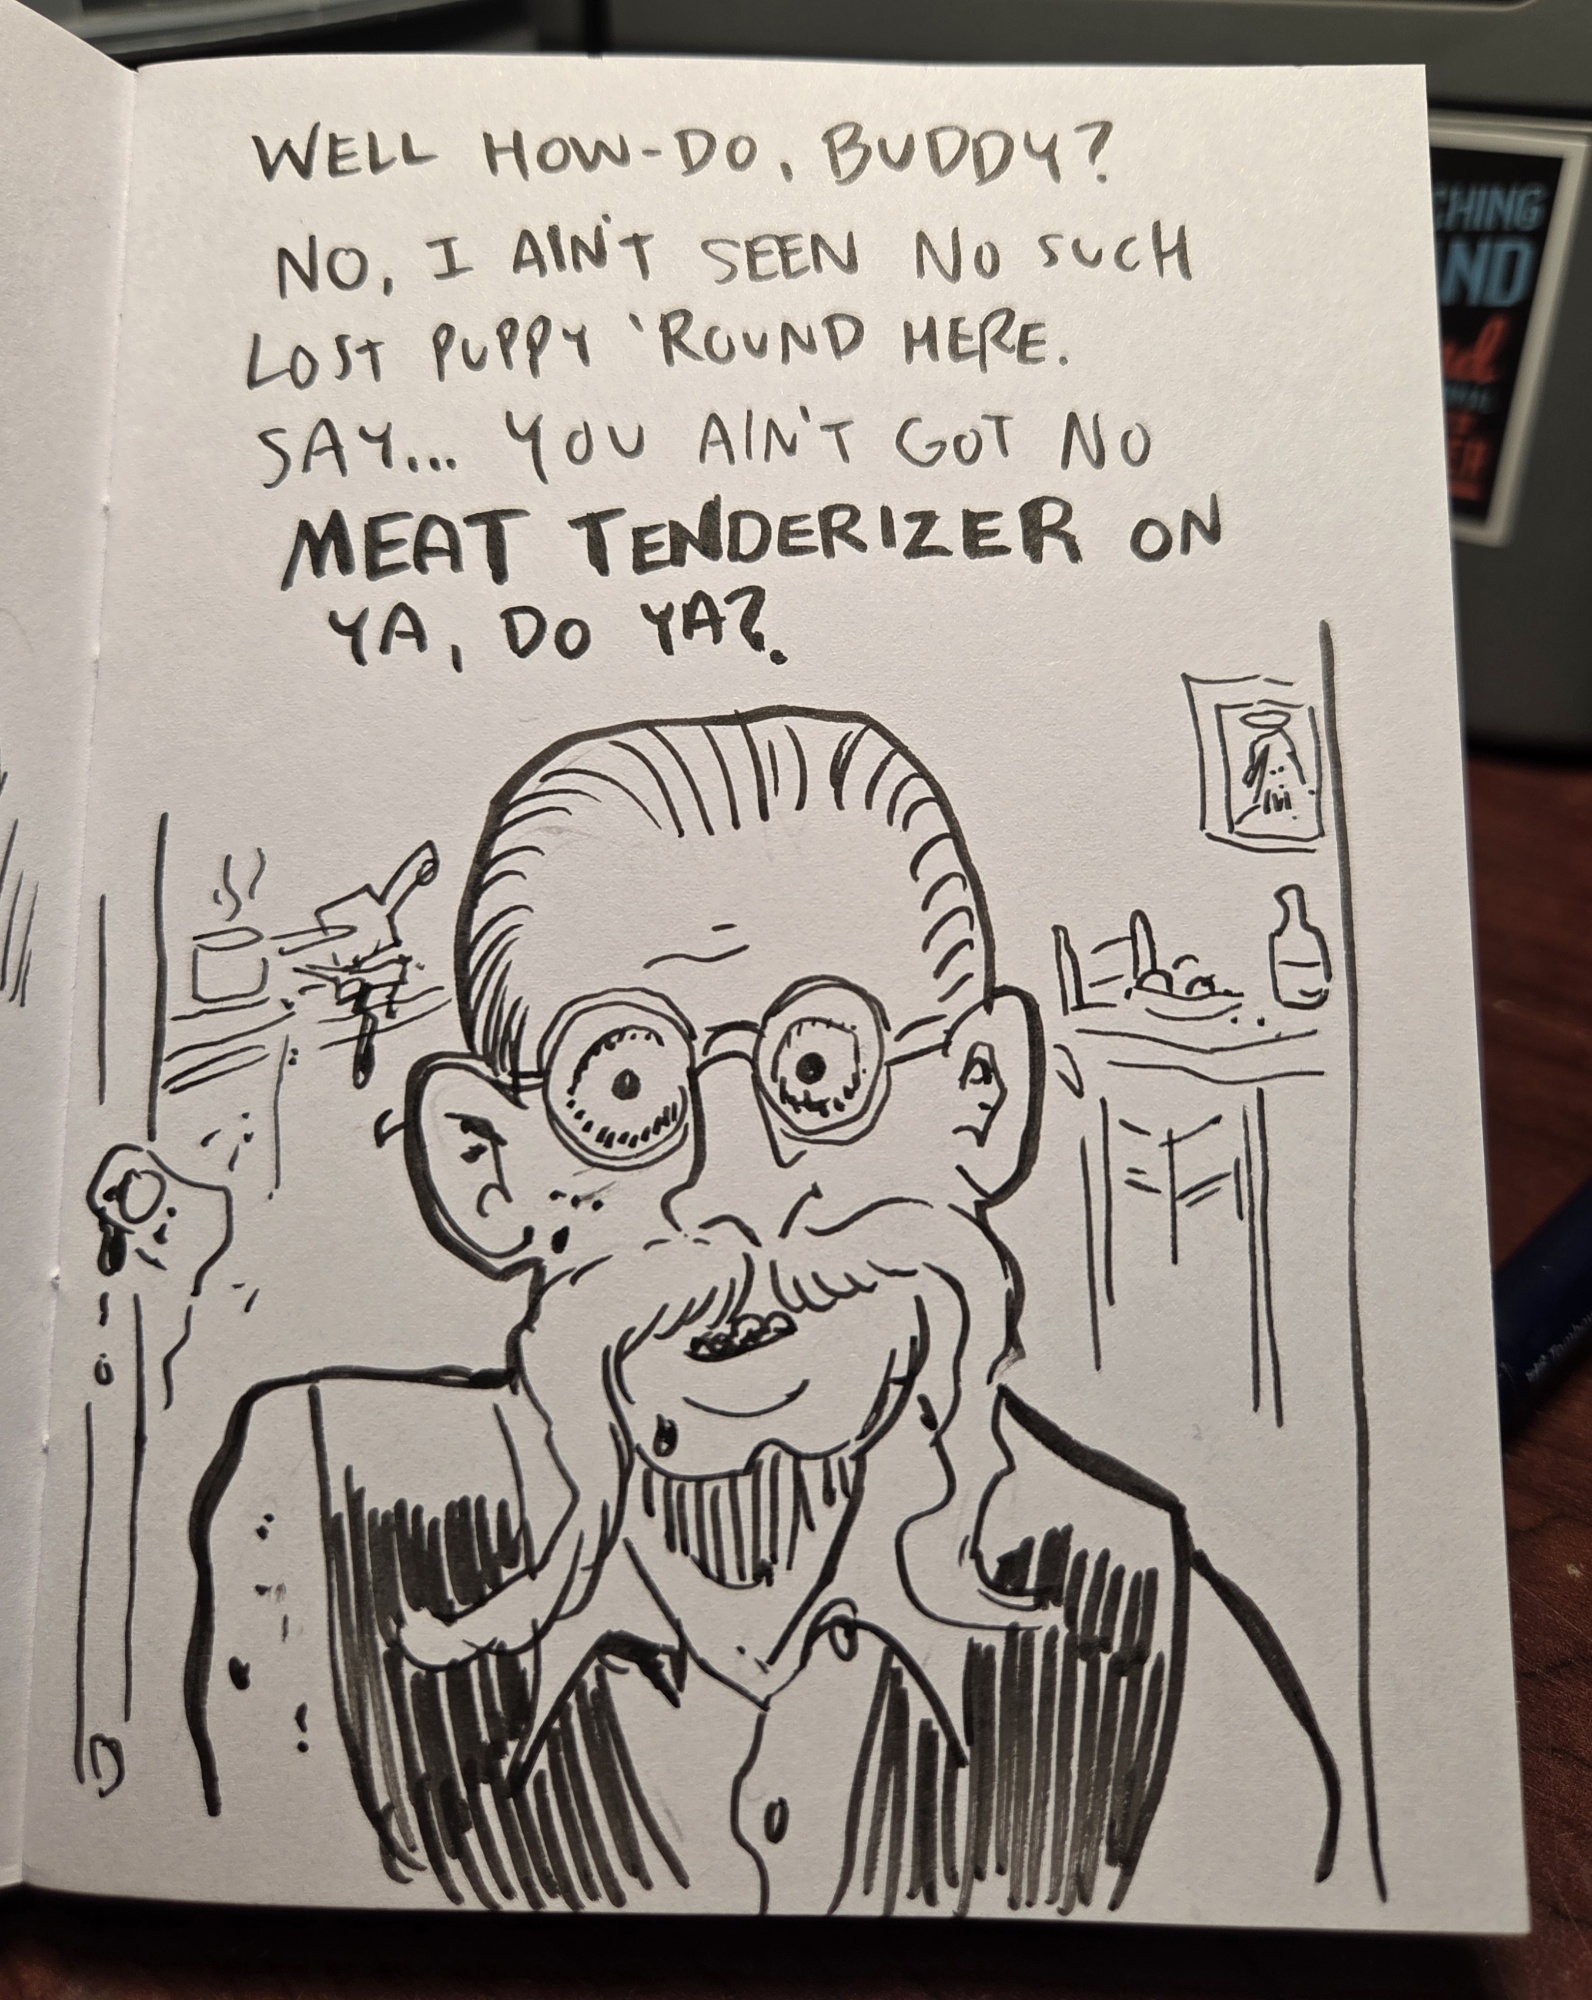 WELL HOW-DO, BUDDY?
NO, I AIN'T SEEN NO SUCH
LOST PUPPY 'ROUND HERE.
SAY... YOU AIN'T GOT NO
MEAT TENDERIZER ON
YA, DO YA?
CHING
ND